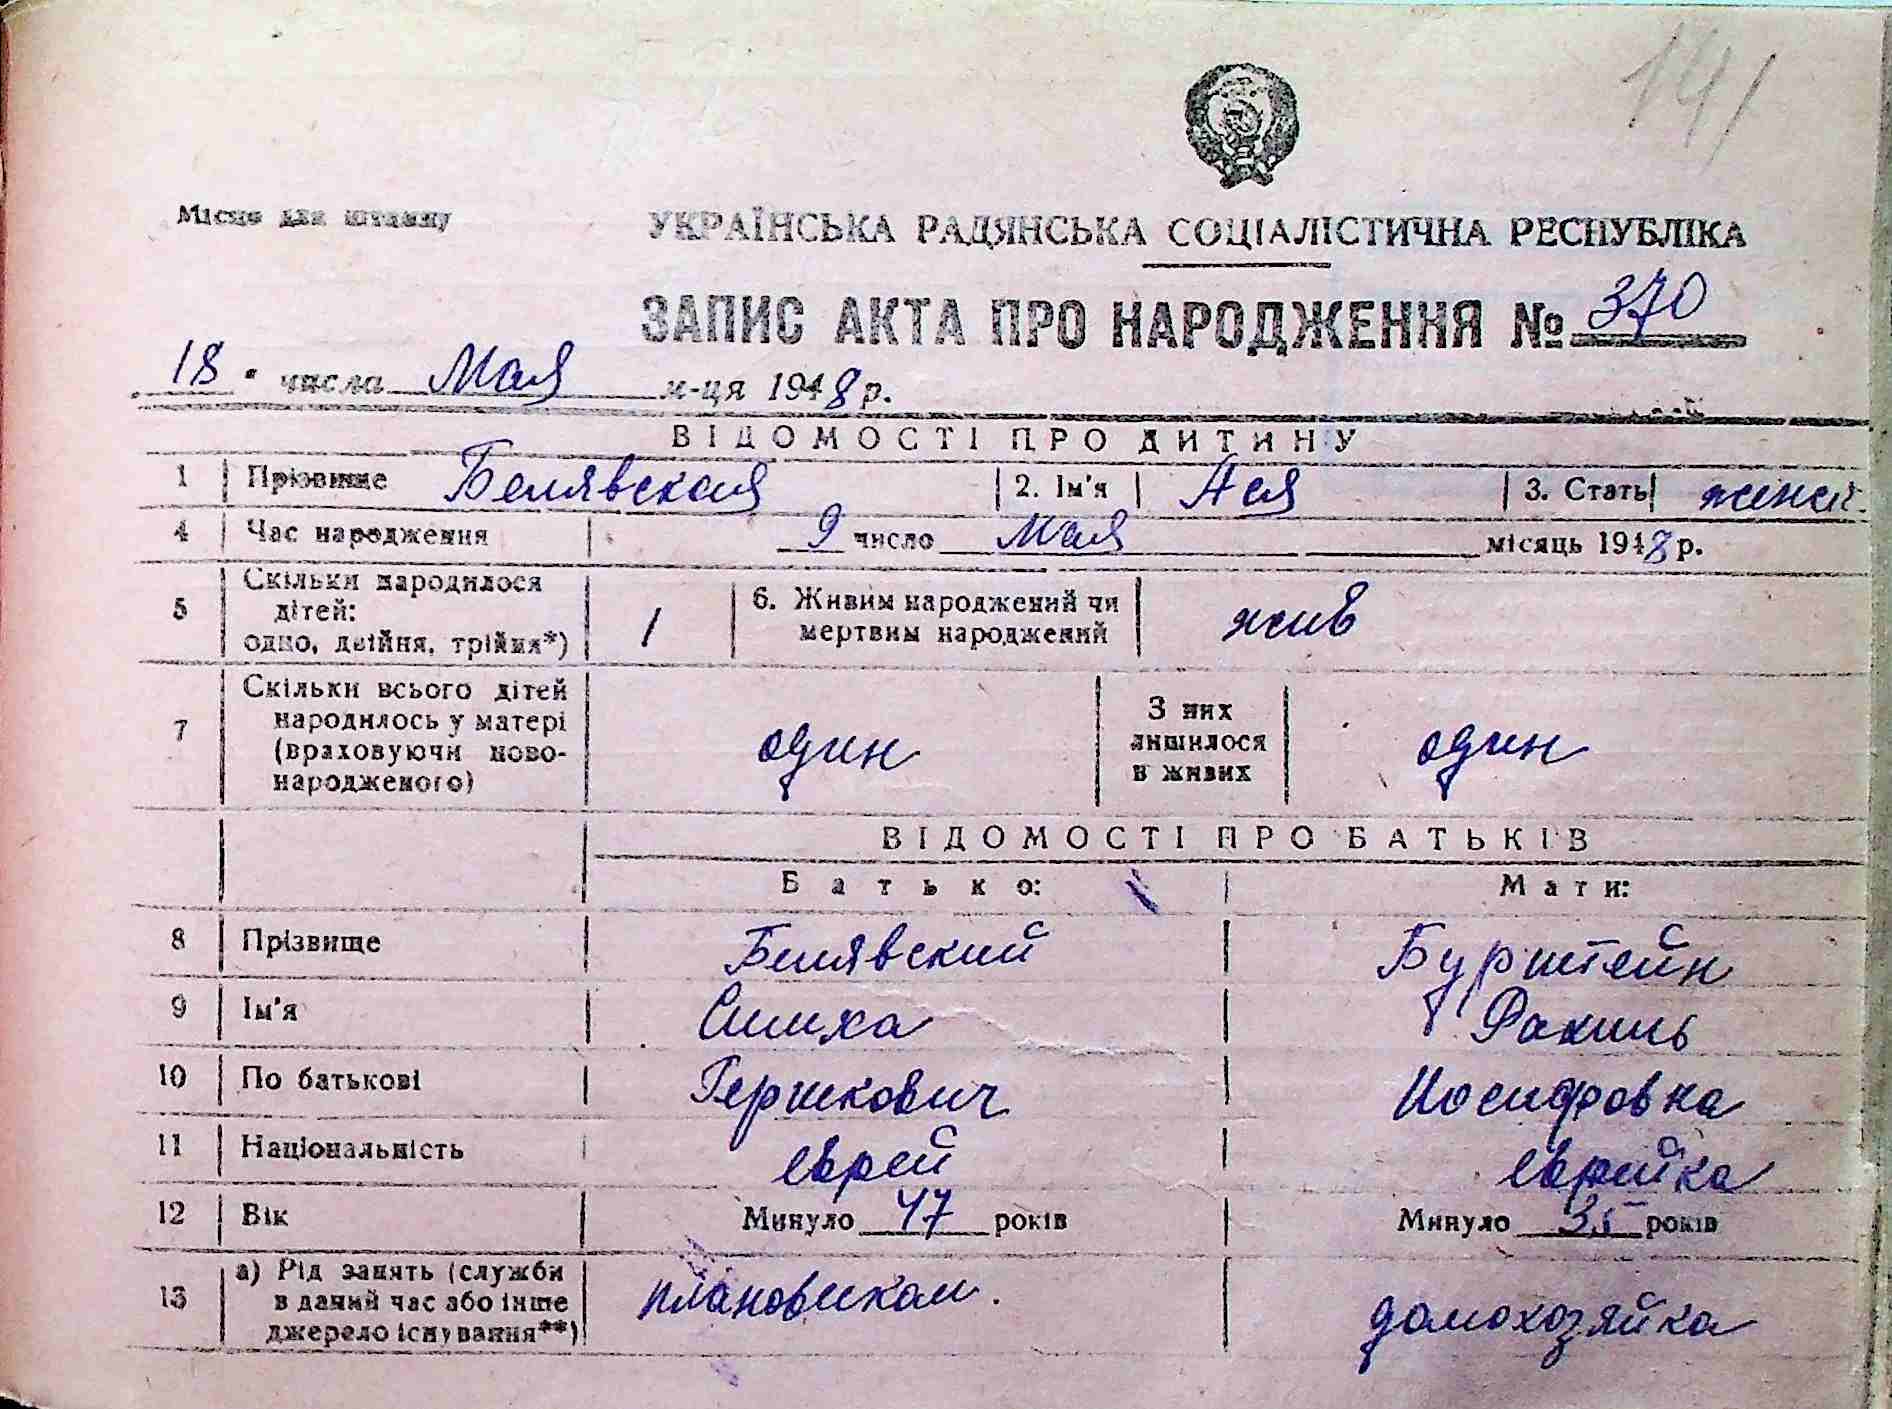 141
Місце для штампу
УКРАЇНСЬКА РАДЯНСЬКА СОЦІАЛІСТИЧНА РЕСПУБЛІКА
ЗАПИС АКТА ПРО НАРОДЖЕННЯ № 370
18 числа Мая м-ця 1948 р.
ВІДОМОСТІ ПРО ДИТИНУ
1 Прізвище Белявская 2. Ім'я Ася 3. Стать женск.
4 Час народження 9 число Мая місяць 1948 р.
5 Скільки народилося
дітей:
одно, двійня, трійня*) 1 6. Живим народжений чи
мертвим народжений жив
7 Скільки всього дітей
народилось у матері
(враховуючи ново-
народженого) один З них
лишилося
в живих один
ВІДОМОСТІ ПРО БАТЬКІВ
Батько: Мати:
8 Прізвище Белявский Бурштейн
9 Ім'я Симха Рахиль
10 По батькові Гершкович Иосифовна
11 Національність еврей еврейка
12 Вік Минуло 47 років Минуло 35 років
13 а) Рід занять (служби
в даний час або інше
джерело існування**) плановиком. домохозяйка